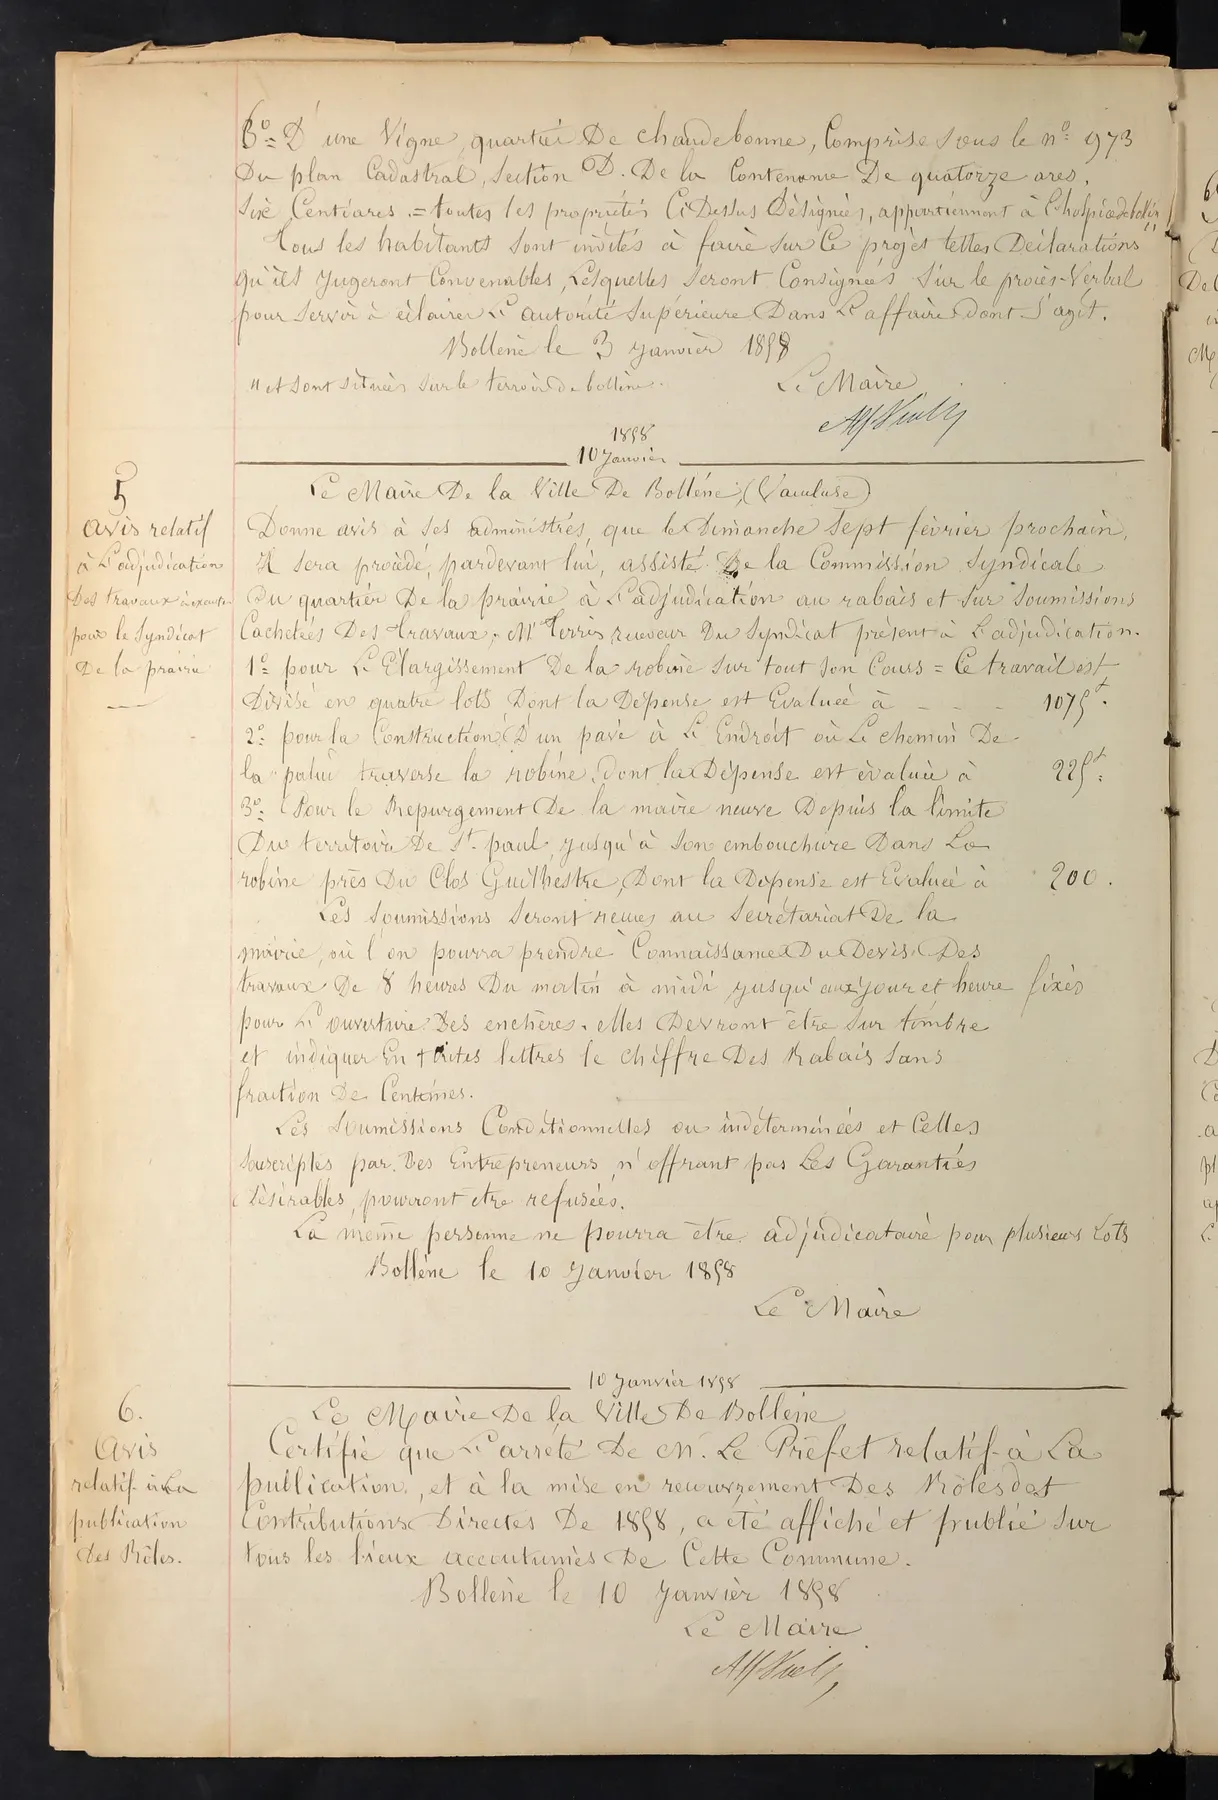 6º= D'une Vigne, quartier De chaudebonne, Comprise sous le nº 973
Du plan Cadastral, section D. De la Contenance De quatorze ares,
Six Centiares. = toutes les propriétés Ci Dessus Désignées, appartiennent à l'hospice de bollène "
Tous les habitants sont invités à faire sur Ce projet telles Déclarations
qu'ils Jugeront Convenables, Lesquelles seront Consignées sur le procès-Verbal
pour servir à éclairer L'autorité Supérieure Dans L'affaire dont s'agit.
Bollène le 3 Janvier 1858
" et sont situées sur le terroir de bollène.
Le Maire
1858
10 Janvier
5
avis relatif
à L'adjudication
Des travaux à exécuter
pour le Syndicat
De la prairie
Le Maire De la Ville De Bollène, (Vaucluse)
Donne avis à ses administrés, que le Dimanche sept février prochain,
Il sera procédé, pardevant lui, assisté De la Commission Syndicale
Du quartier De la prairie à L'adjudication au rabais et sur soumissions
Cachetées Des travaux, Mr Terris receveur Du Syndicat présent à L'adjudication.
1º pour L'Elargissement De la robine sur tout son Cours = Ce travail est
Divisé en quatre lots Dont la Dépense est Evaluée à - - - 1075f.
2º= pour la Construction D'un pavé à L'Endroit où Le chemin De
la palud traverse la robine, dont la Dépense est évaluée à 225f.
3º= Pour le Repurgement De la maire neuve Depuis la limite
Du territoire De St. paul, jusqu'à son embouchure Dans La
robine près Du Clos Guilhestre, Dont la Dépense est Evaluée à 200.
Les soumissions seront reçues au Secrétariat De la
mairie, où l'on pourra prendre Connaissance Du Devis Des
travaux De 8 heures Du matin à midi jusqu'aux jour et heure fixés
pour L'ouverture Des enchères. elles Devront être sur timbre
et indiquer En toutes lettres le chiffre Des Rabais sans
fraction De Centimes.
Les Soumissions Conditionnelles ou indéterminées et Celles
souscriptes par Des Entrepreneurs n'offrant pas Les Garanties
Désirables, pourront être refusées.
La même personne ne pourra être adjudicataire pour plusieurs Lots
Bollène le 10 Janvier 1858
Le Maire
10 Janvier 1858
6.
Avis
relatif à La
publication
des Rôles.
Le Maire De la Ville De Bollène
Certifie que L'arrêté De M. Le Préfet relatif à La
publication, et à la mise en recouvrement Des Rôles des
Contributions Directes De 1858, a été affiché et publié sur
tous les lieux accoutumés De Cette Commune.
Bollène le 10 Janvier 1858
Le Maire